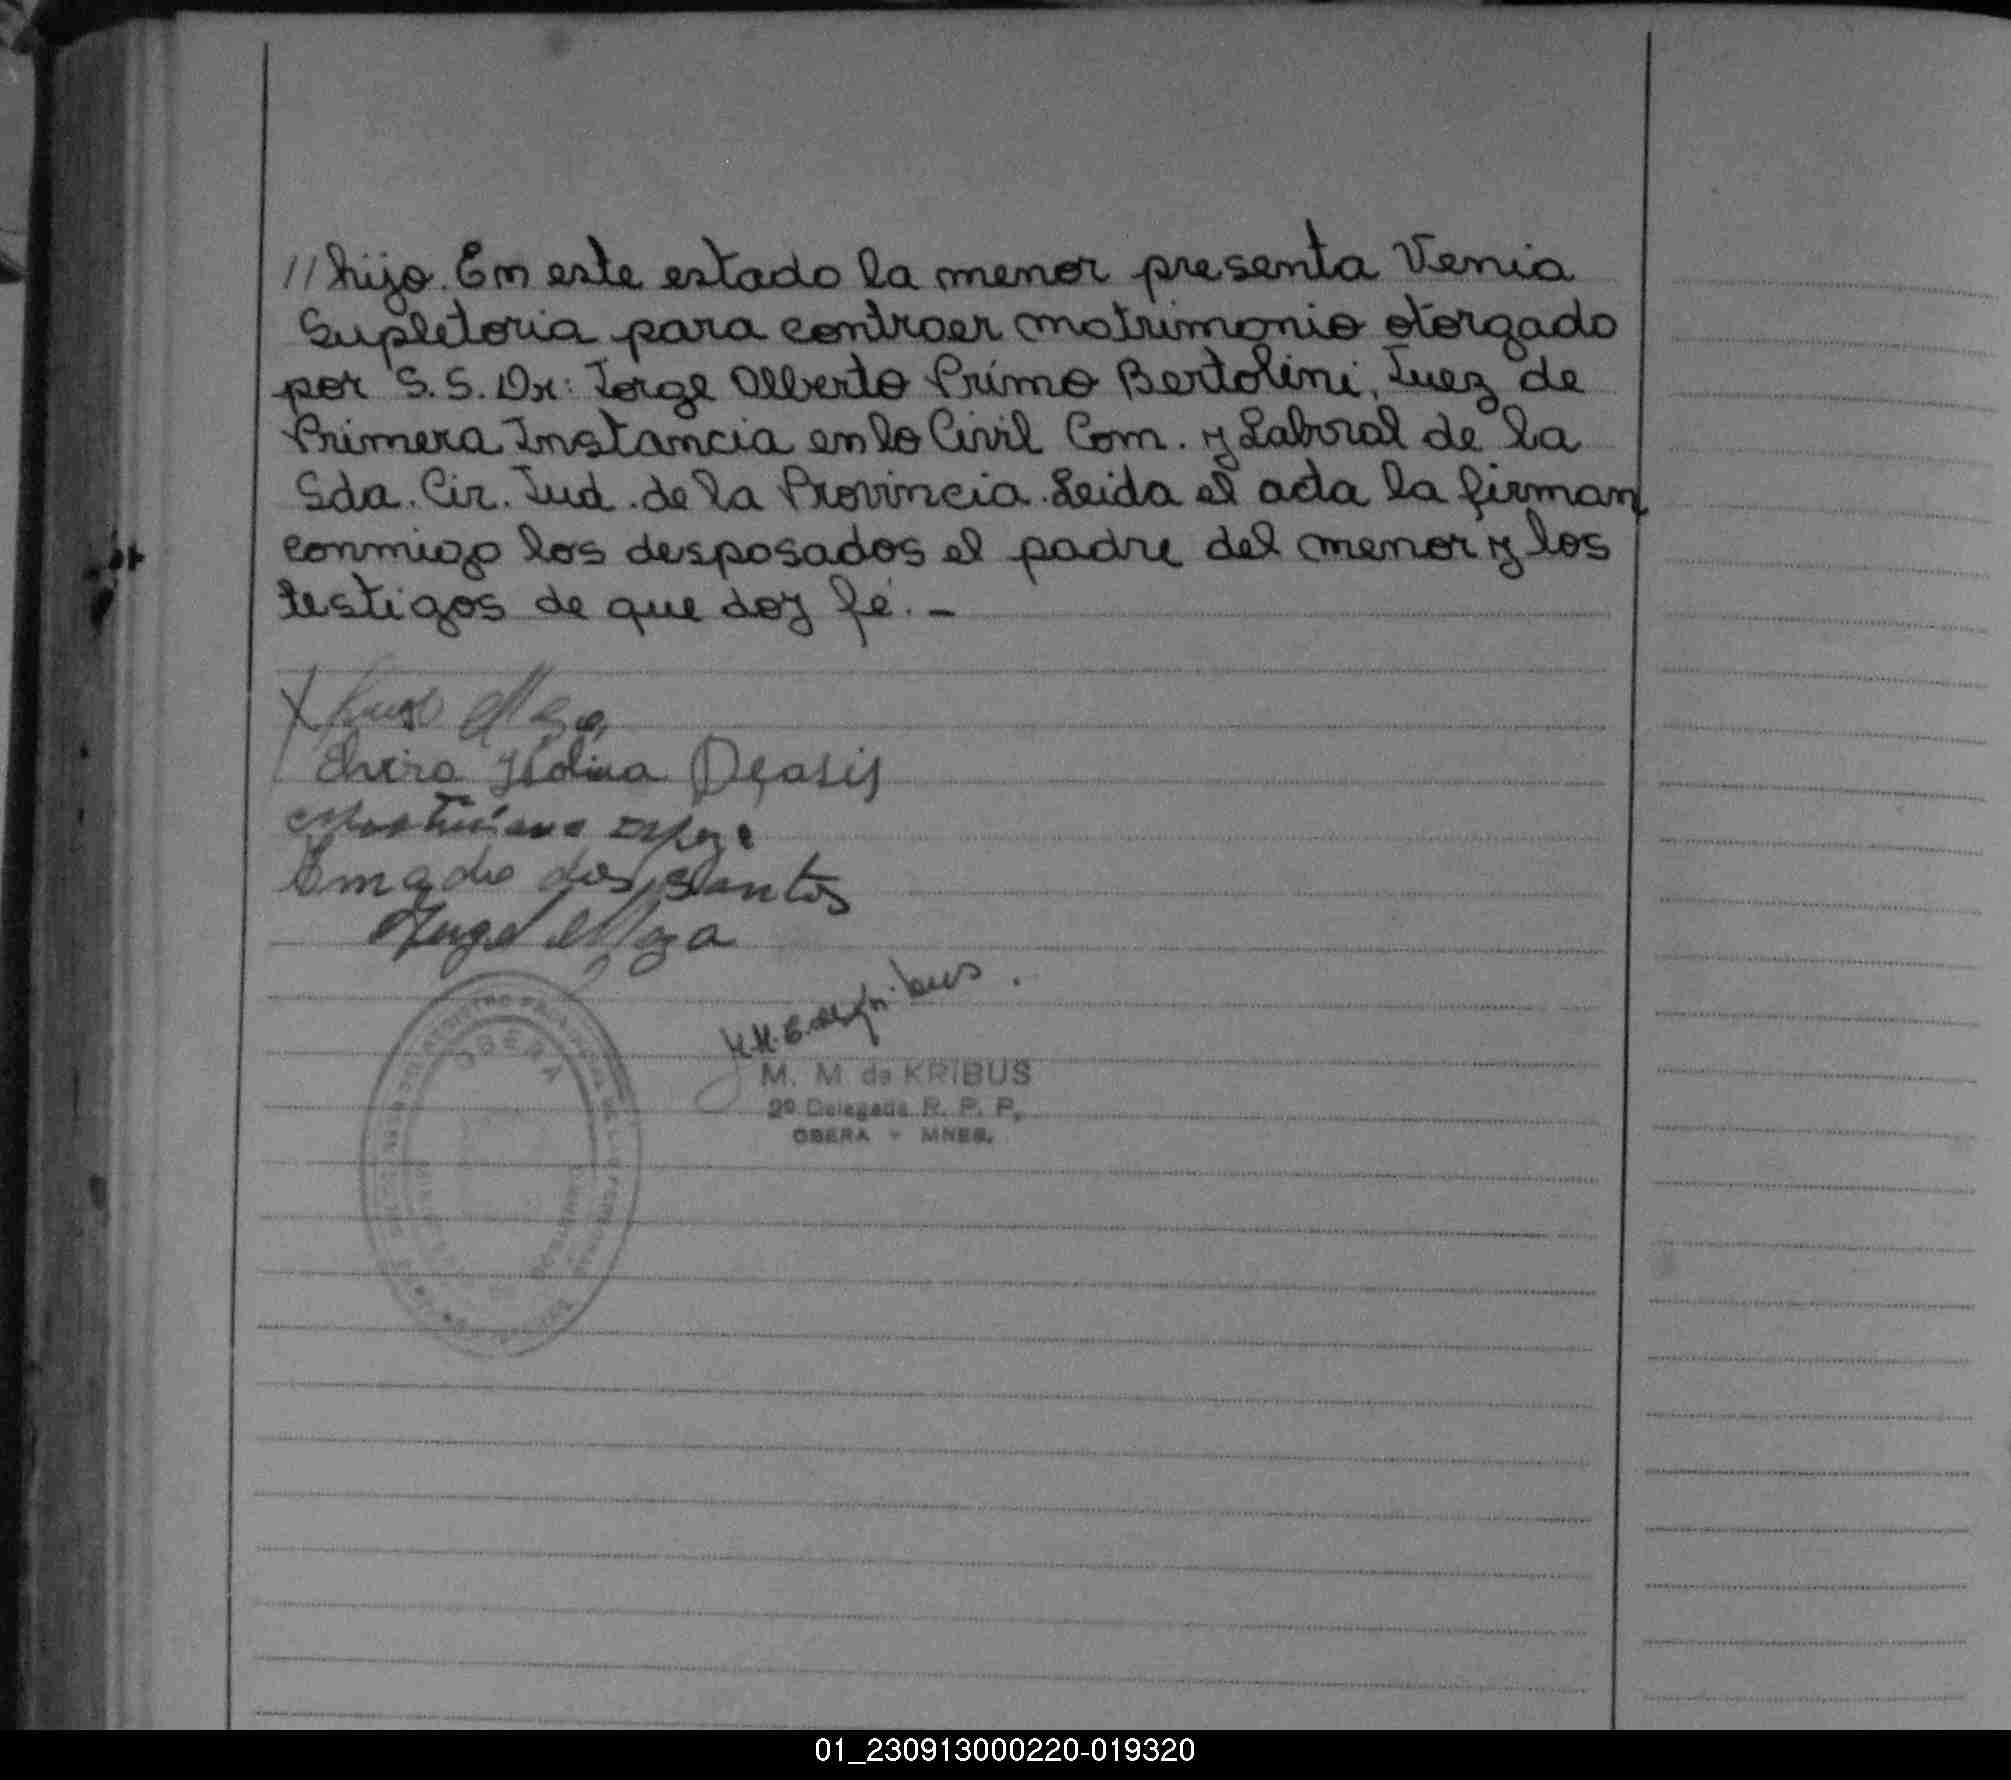 //hijo. En este estado la menor presenta Venia
Supletoria para contraer matrimonio otorgado
por S. S. Dr: Jorge Alberto Primo Bertolini, Juez de
Primera Instancia en lo Civil Com. y Laboral de la
Sda. Cir. Jud. de la Provincia. Leida el acta la firman
conmigo los desposados el padre del menor y los
testigos de que doy fé. -
X Meza
Molina Deasis
dos Santos
Hugo Meza
OBERA
M. M de KRIBUS
2º Delegada R. P. P.
OBERA - MNES.
01_230913000220-019320